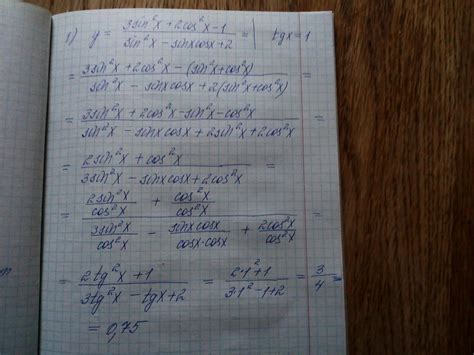 1) y = (3sin²x + 2cos²x - 1)/(sin²x - sinxcosx + 2) = | tgx = 1
= (3sin²x + 2cos²x - (sin²x + cos²x))/(sin²x - sinxcosx + 2(sin²x + cos²x)) =
= (3sin²x + 2cos²x - sin²x - cos²x)/(sin²x - sinxcosx + 2sin²x + 2cos²x) =
= (2sin²x + cos²x)/(3sin²x - sinxcosx + 2cos²x) =
= (2sin²x/cos²x + cos²x/cos²x)/(3sin²x/cos²x - sinxcosx/cosx·cosx + 2cos²x/cos²x) =
= (2tg²x + 1)/(3tg²x - tgx + 2) = (2·1² + 1)/(3·1² - 1 + 2) = 3/4 =
= 0,75